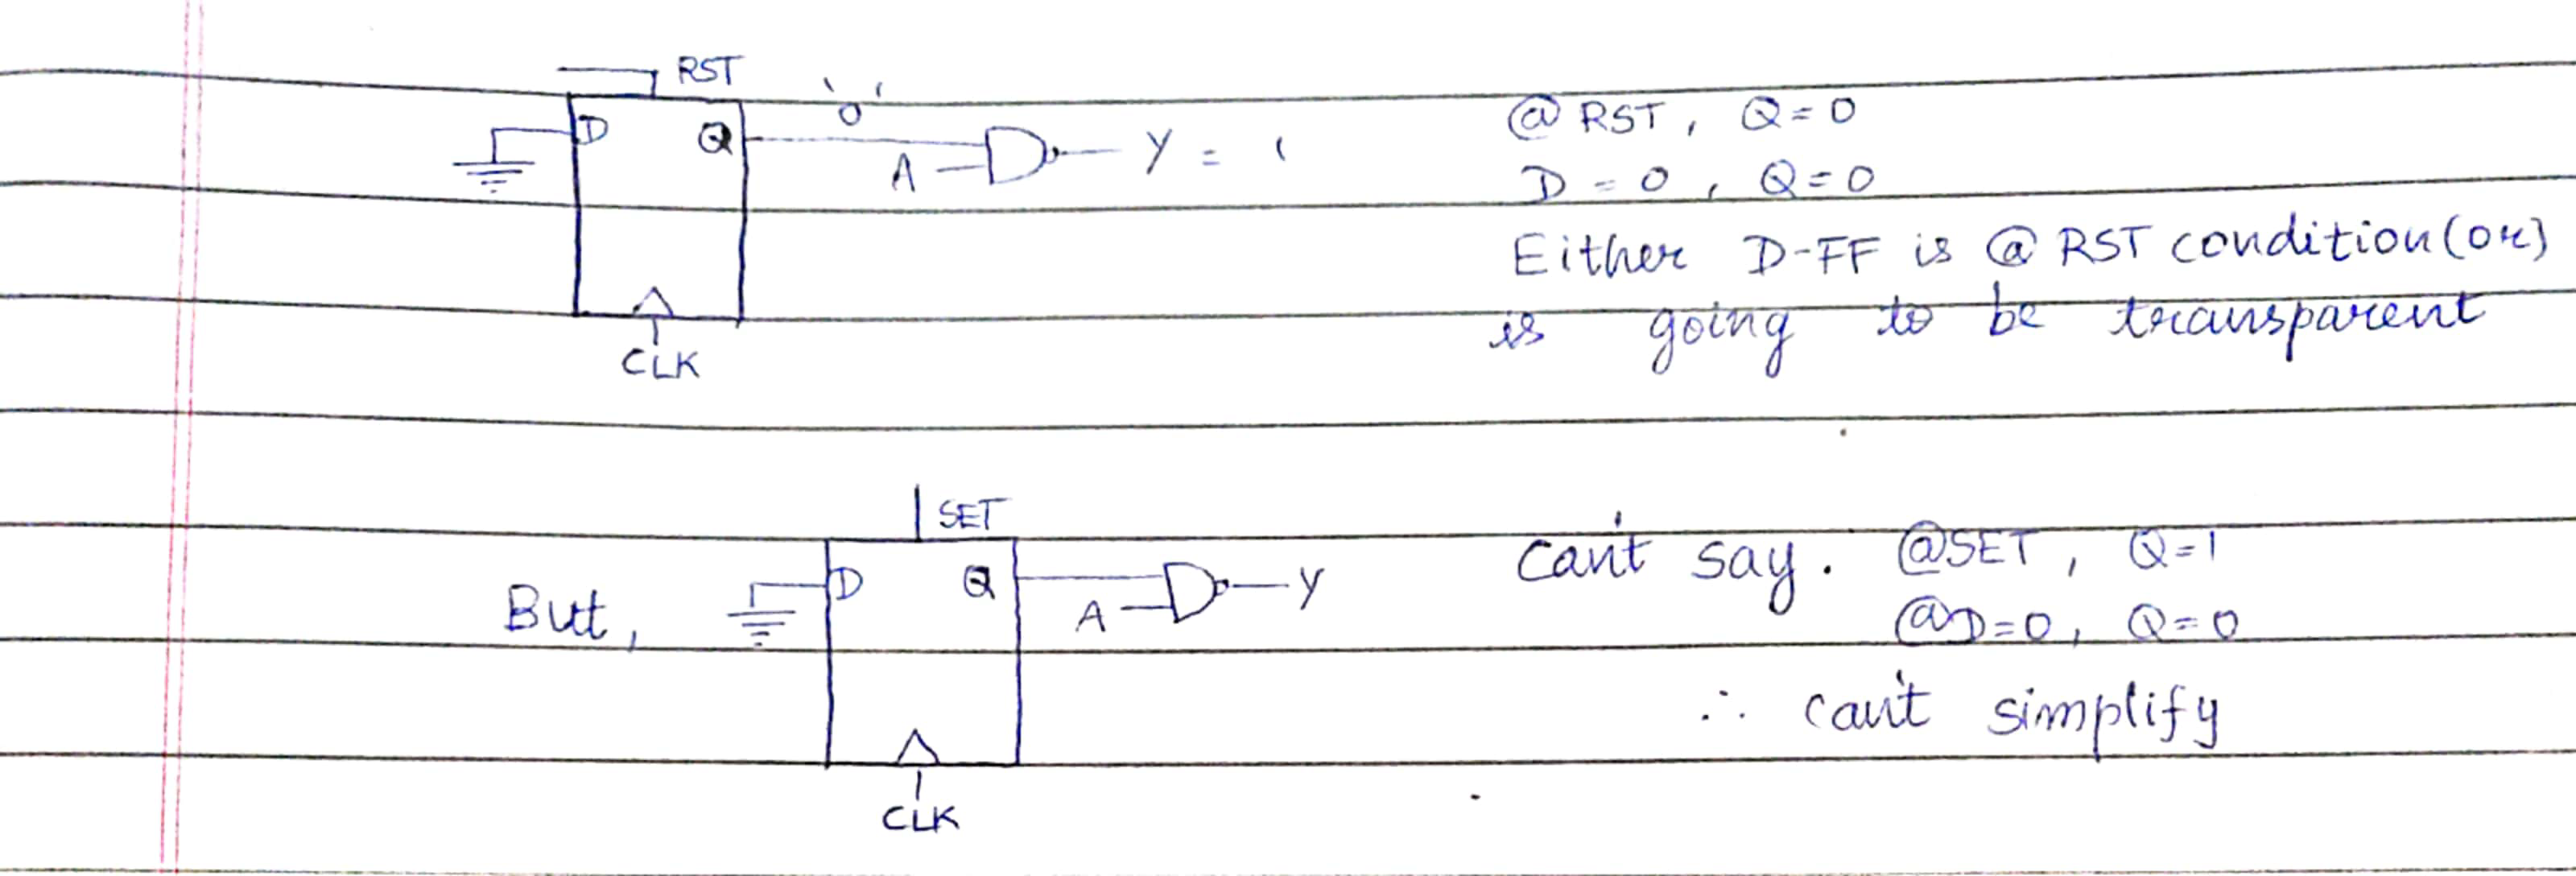 RST
D Q '0' A Y = 1
CLK
@ RST, Q = 0
D = 0, Q = 0
Either D-FF is @ RST condition (or)
is going to be transparent
But,
SET
D Q A Y
CLK
can't say. @SET, Q=1
@D=0, Q=0
∴ can't simplify